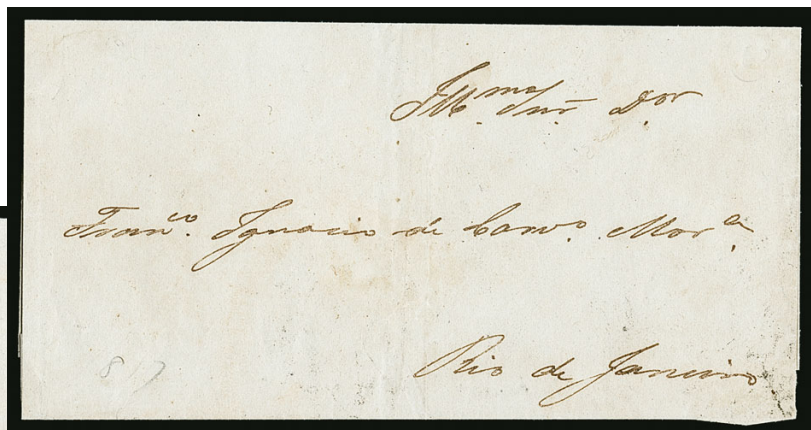 Illmo. Snr. Dor
Franco. Ignacio de Carvo. Mora.
Rio de Janeiro
8/7